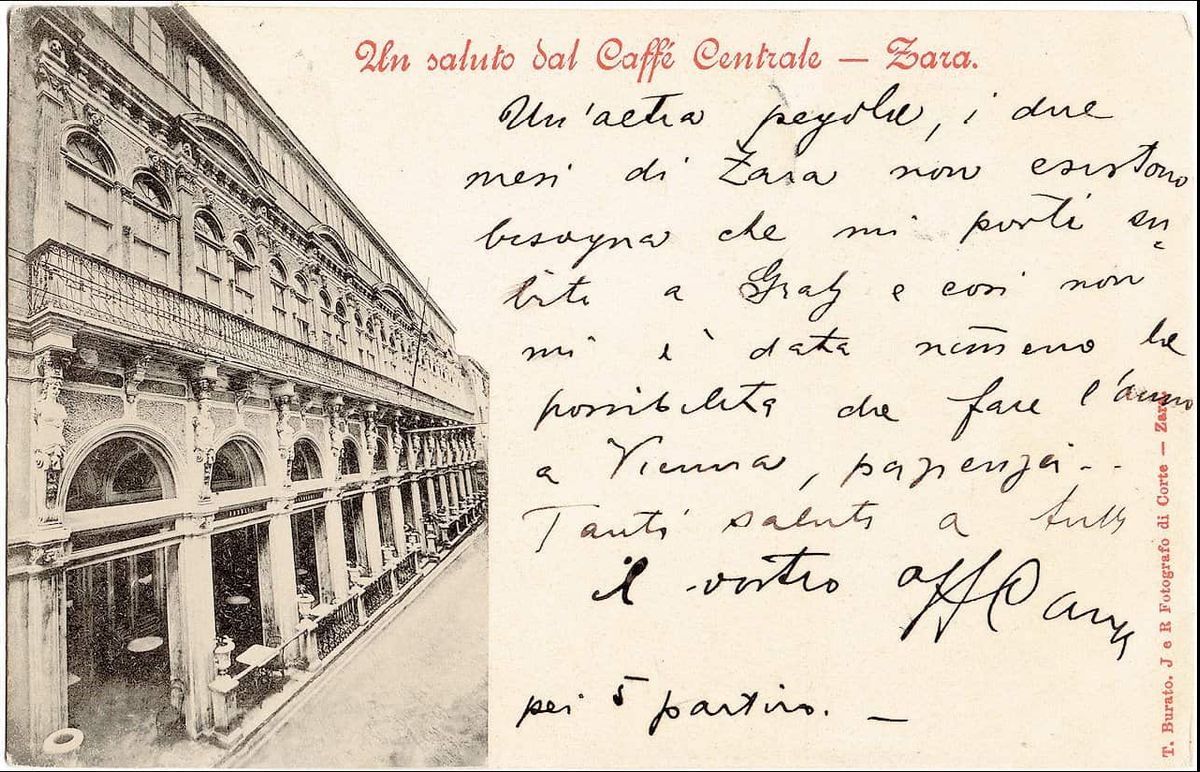 Un saluto dal Caffé Centrale — Zara.
Un'altra, i due
mesi di Zara non esistono
bisogna che mi porti su-
bito a Graz e così non
mi è data nemmeno la
possibilità che fare l'anno
a Vienna, pazienza..
Tanti saluti a tutti
il vostro aff
pei 5 partiro. —
T. Burato, J e R Fotografo di Corte — Zara